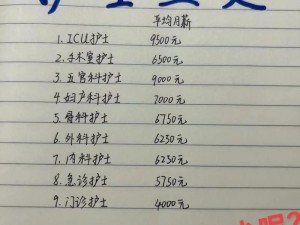 平均月薪
1. ICU护士 9500元
2. 手术室护士 6500元
3. 五官科护士 9000元
4. 妇产科护士 7000元
5. 骨科护士 6750元
6. 外科护士 6250元
7. 内科护士 6250元
8. 急诊护士 5750元
9. 门诊护士 4000元